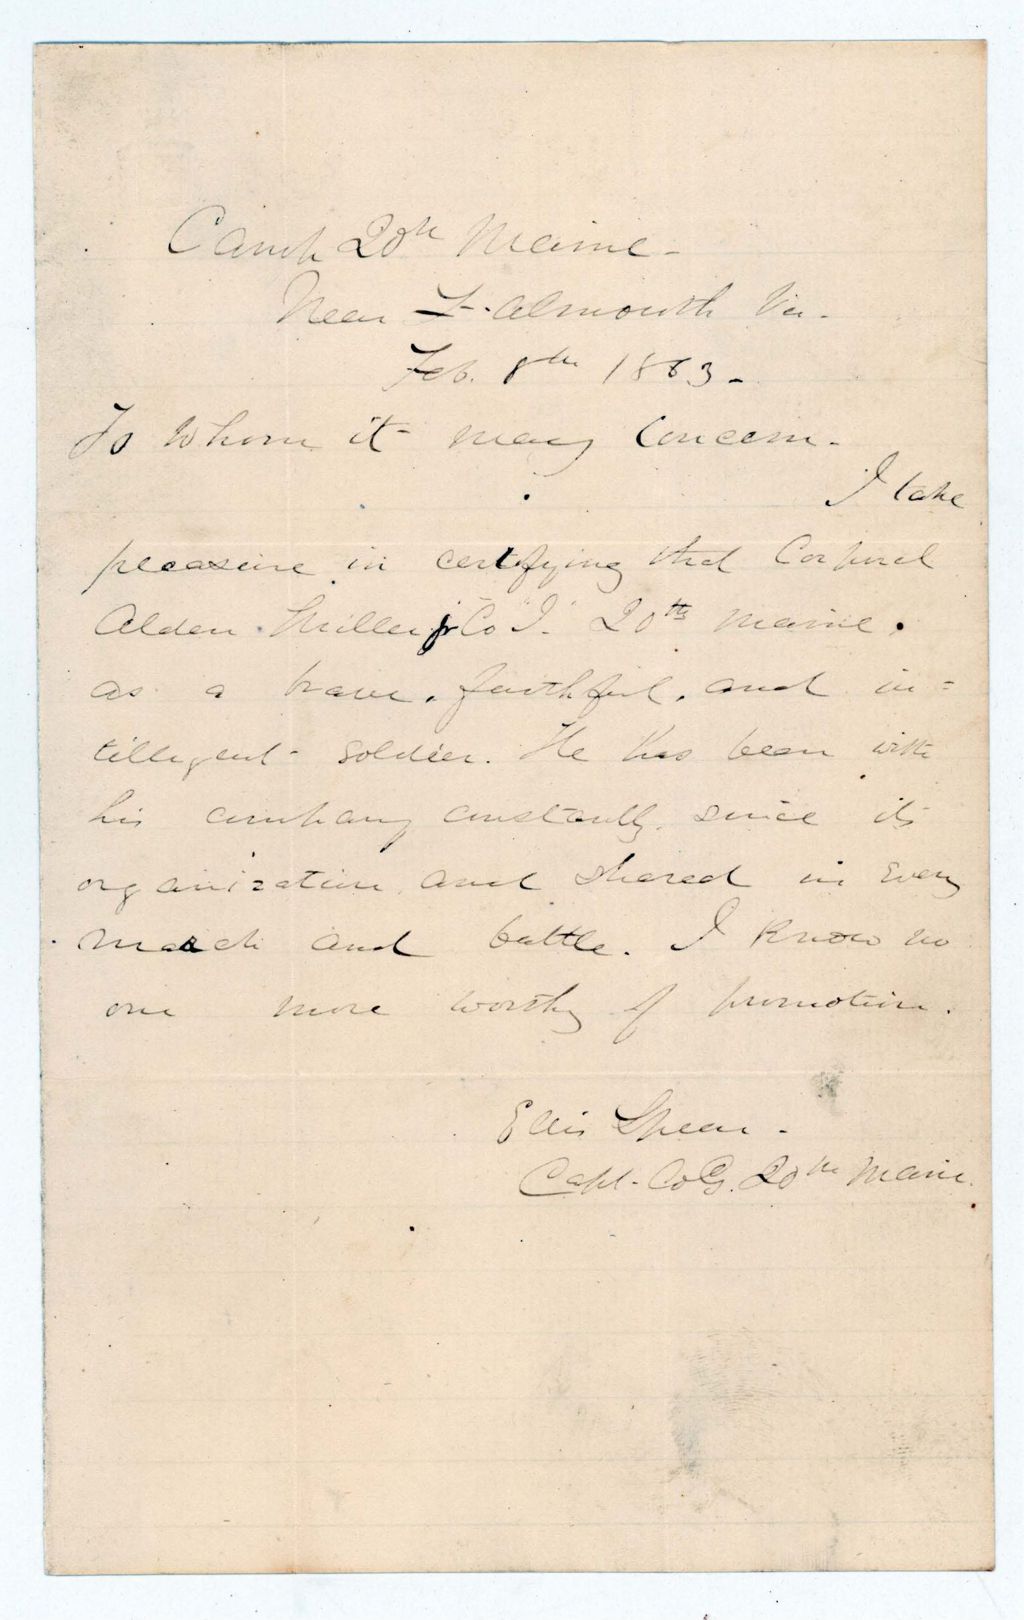 Camp 20th Maine -
Near Falmouth Va.
Feb. 8th 1863 -
To Whom it may Concern -
I take
pleasure in certifying that Corporal
Alden Miller Jr Co "I" 20th Maine.
as a brave, faithful, and in=
telligent soldier. He has been with
his company constantly, since its
organization and shared in every
march and battle. I know no
one more worthy of promotion.
Ellis Spear -
Capt. Co G. 20th Maine.